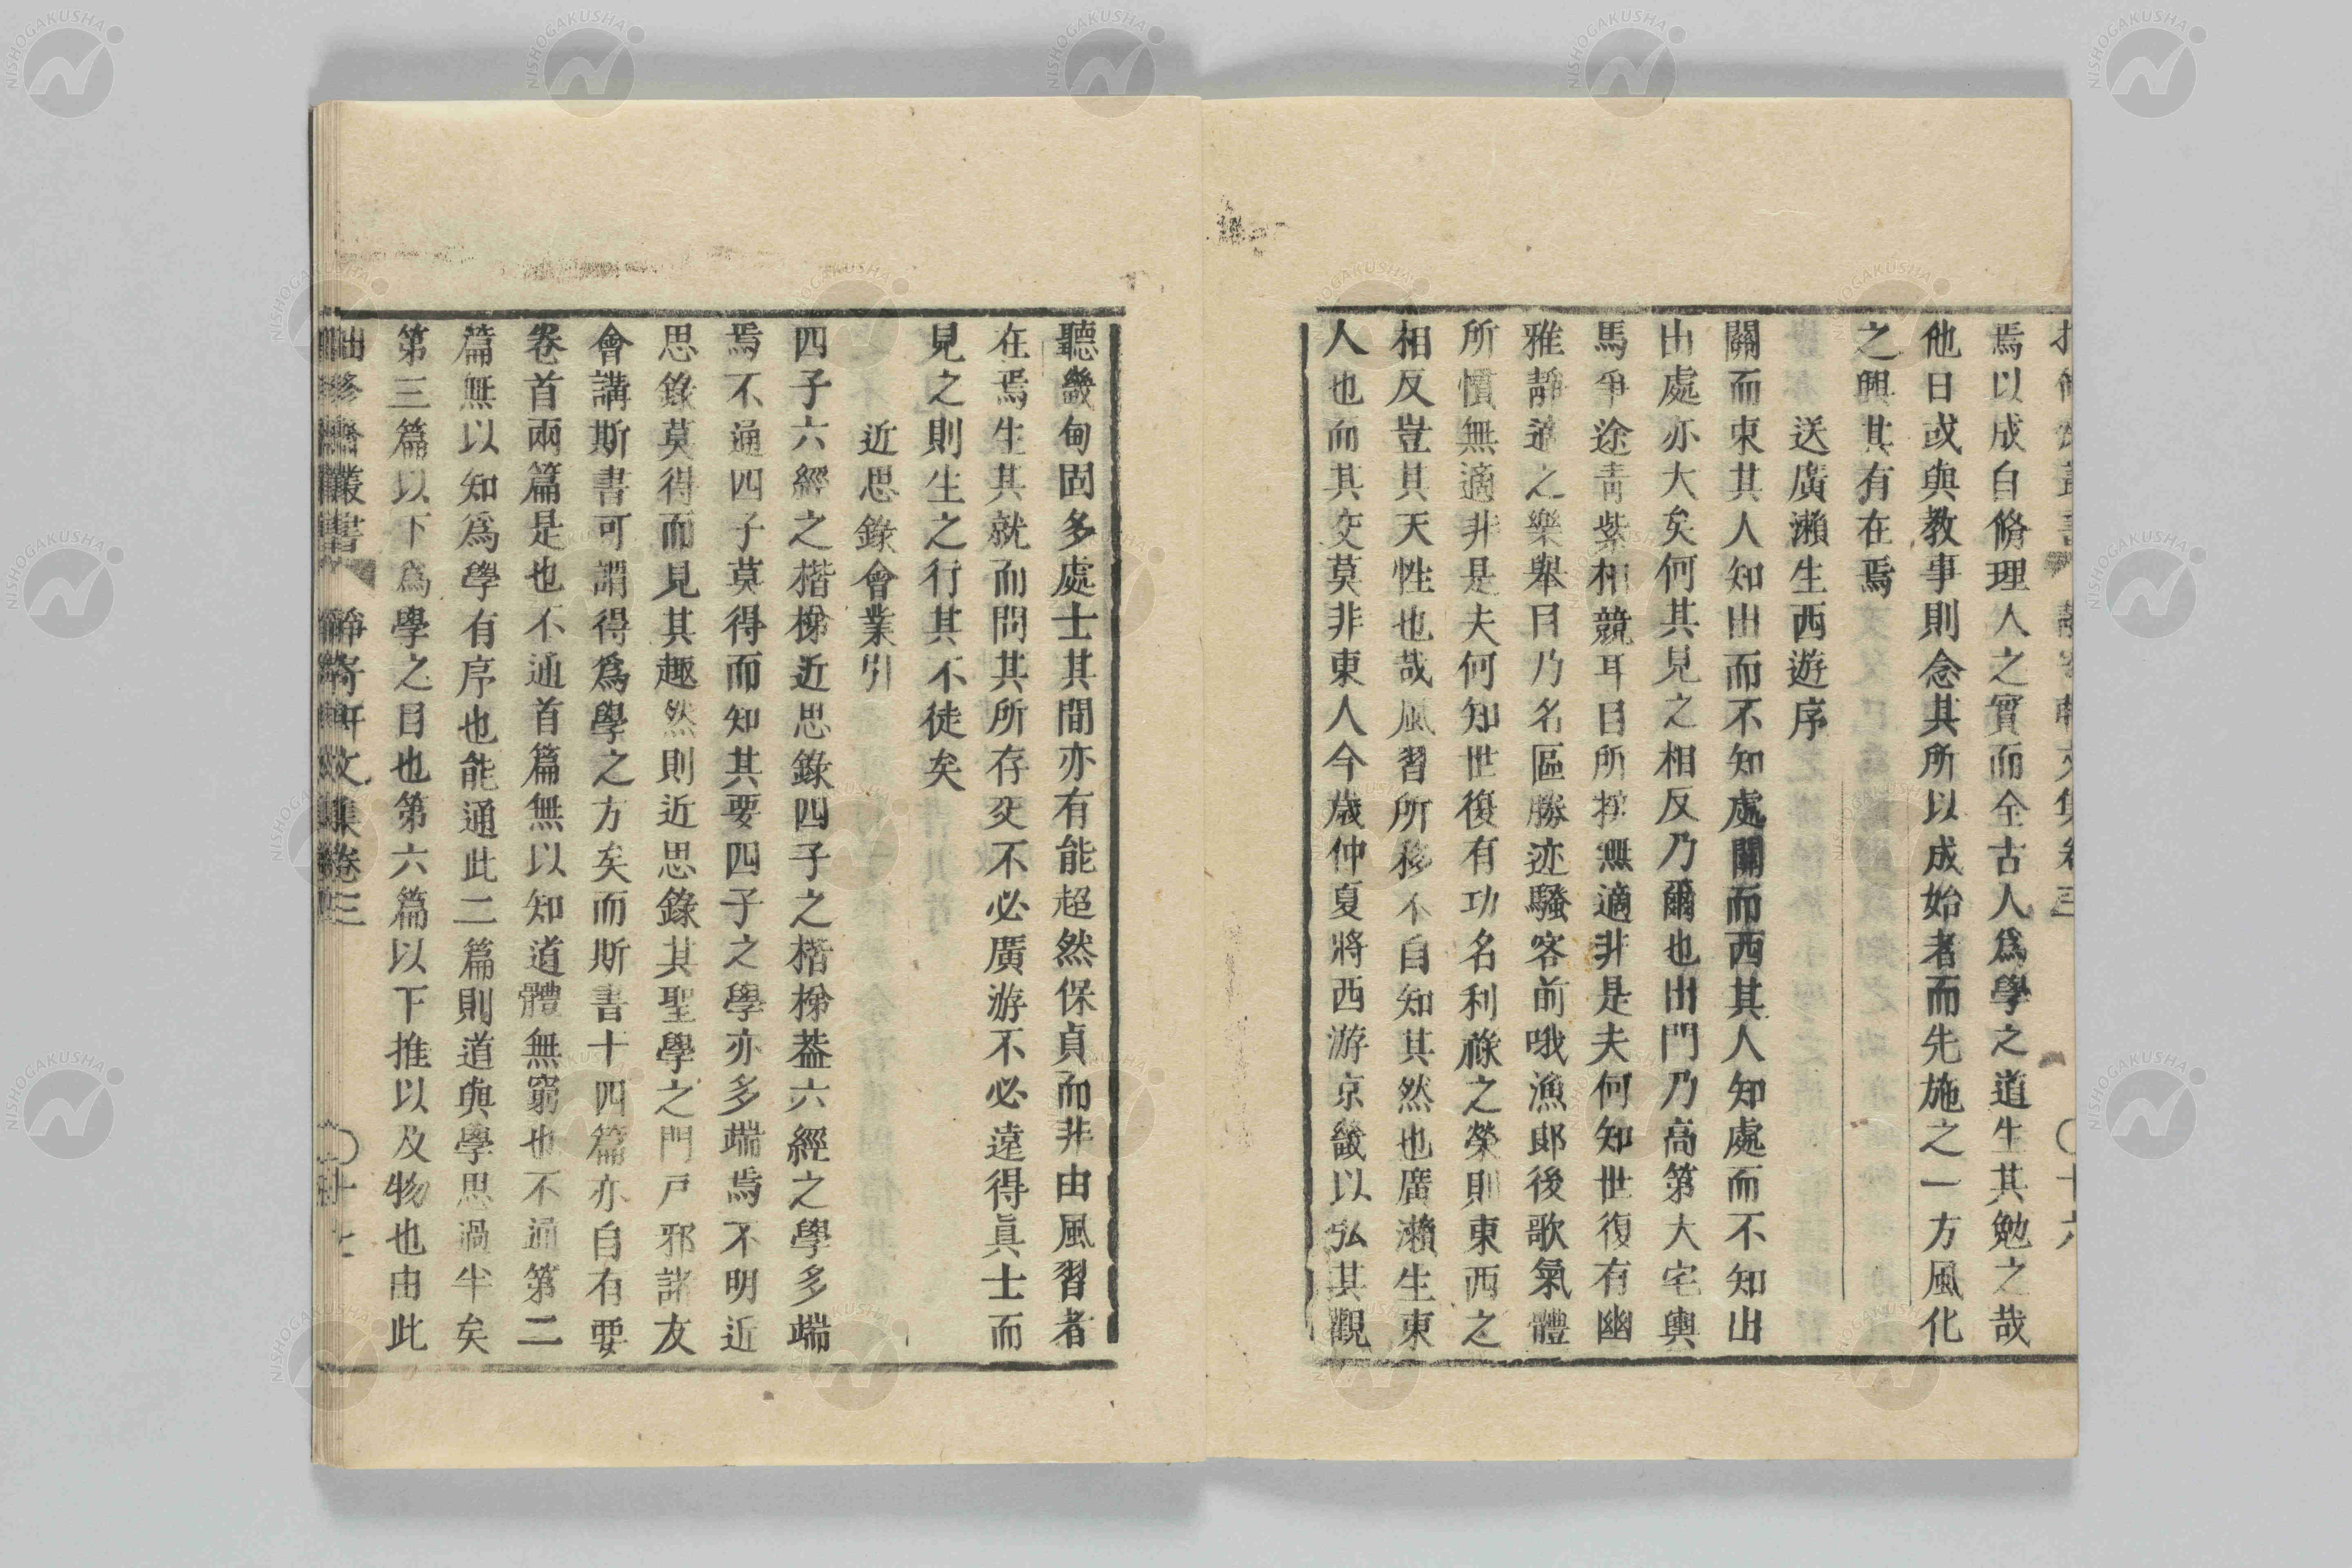 焉以成自脩理人之實而全古人爲學之道生其勉之哉
他日或與教事則念其所以成始者而先施之一方風化
之興其有在焉
送廣瀨生西遊序
關而東其人知出而不知處關而西其人知處而不知出
出處亦大矣何其見之相反乃爾也出門乃高第大宅輿
馬爭途靑紫相競耳目所接無適非是夫何知世復有幽
雅靜逸之樂舉目乃名區勝迹騷客前哦漁郎後歌氣體
所慣無適非是夫何知世復有功名利祿之榮則東西之
相反豈其天性也哉風習所移不自知其然也廣瀨生東
人也而其交莫非東人今歲仲夏將西游京畿以弘其觀
聽畿甸固多處士其間亦有能超然保貞而非由風習者
在焉生其就而問其所存交不必廣游不必遠得眞士而
見之則生之行其不徒矣
近思錄會業引
四子六經之楷梯近思錄四子之楷梯葢六經之學多端
焉不通四子莫得而知其要四子之學亦多端焉不明近
思錄莫得而見其趣然則近思錄其聖學之門戸邪諸友
會講斯書可謂得爲學之方矣而斯書十四篇亦自有要
卷首兩篇是也不通首篇無以知道體無窮也不通第二
篇無以知爲學有序也能通此二篇則道與學思過半矣
第三篇以下爲學之目也第六篇以下推以及物也由此
文集卷三
十七
NISHOGAKUSHA